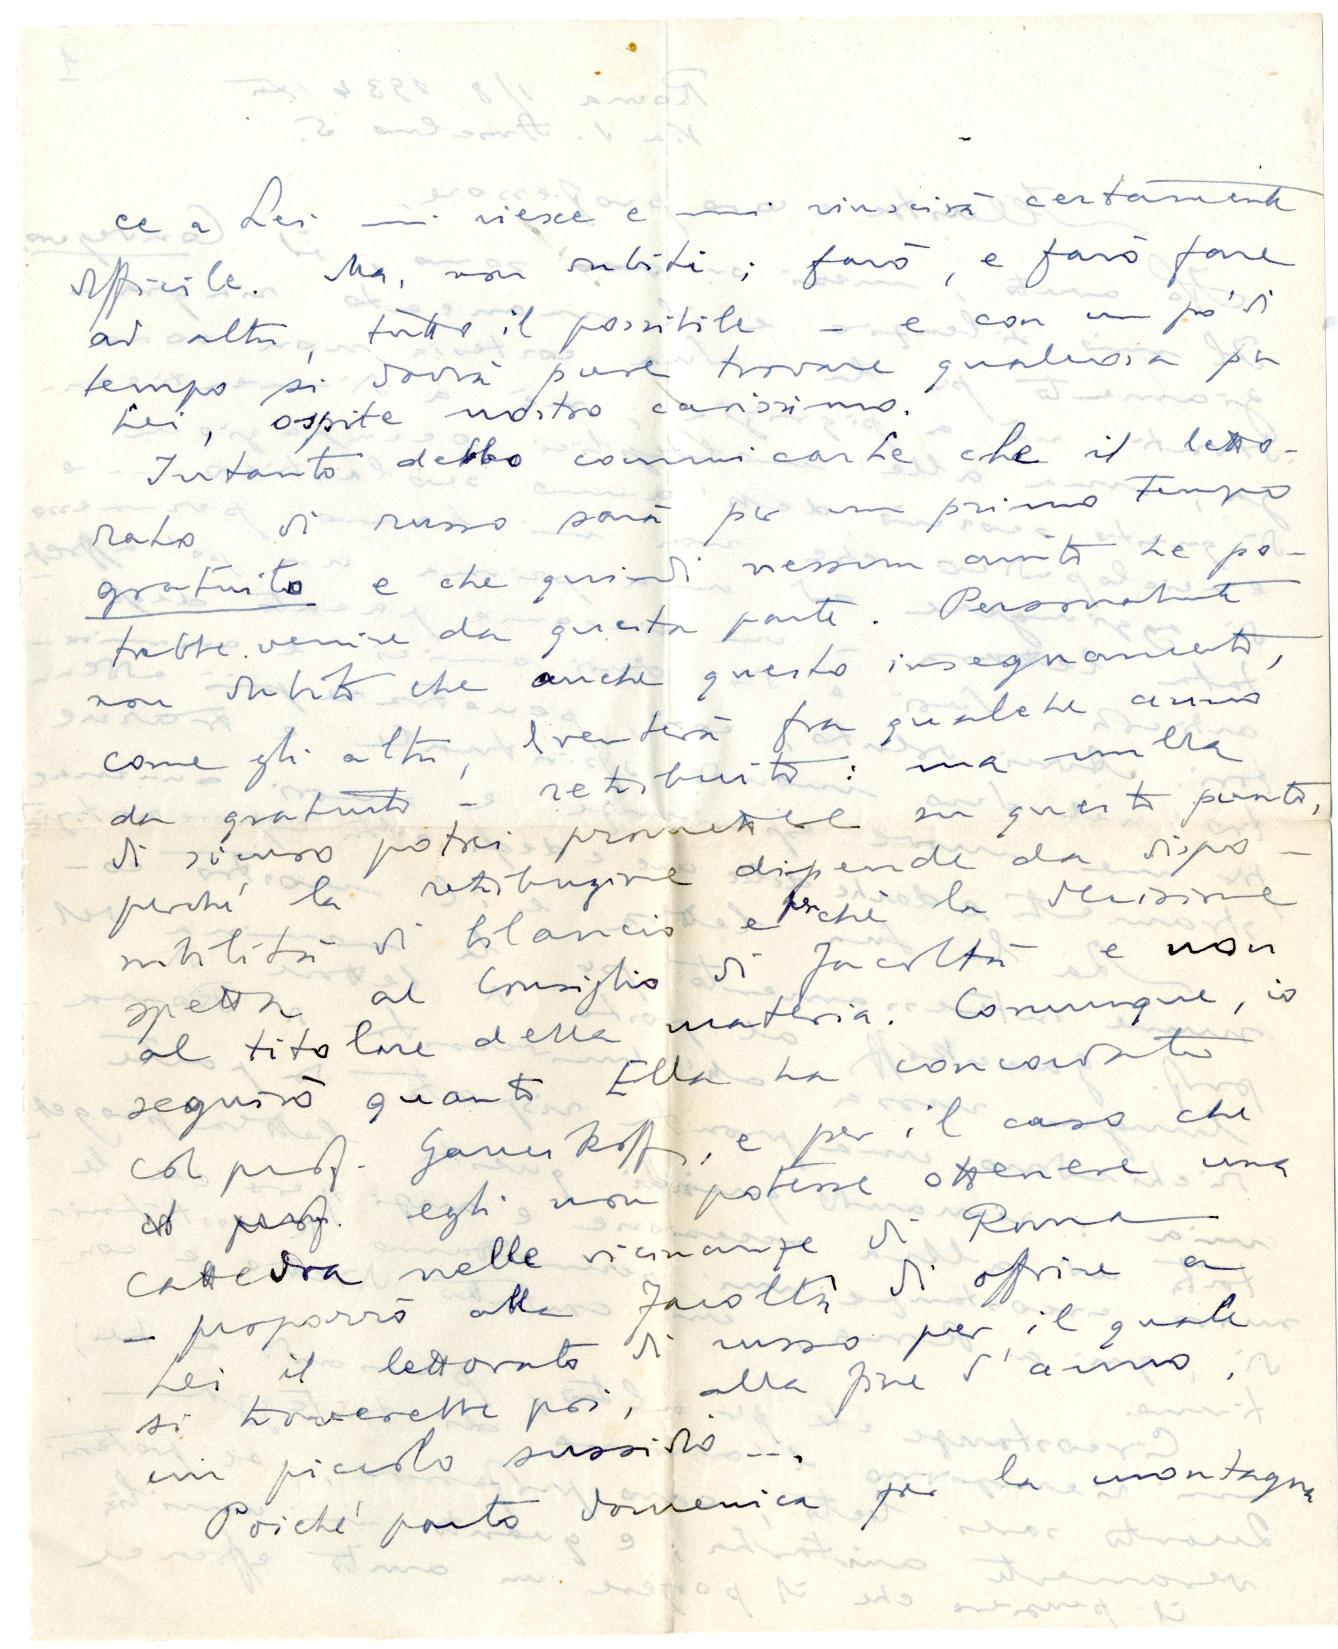 ce a Lei mi riesce e mi riuscirà certamente
difficile. Ma, non dubiti; farò, e farò fare
ad altri, tutto il possibile – e con un pò di
tempo si dovrà pure trovare qualcosa per
Lei, ospite nostro carissimo.
Intanto debbo comunicarLe che il letto-
rato di russo sarà per un primo tempo
gratuito e che quindi nessun aiuto Le po-
trebbe venire da questa parte. Personalmente
non dubito che anche questo insegnamento,
come gli altri, diventerà fra qualche anno
da gratuito – retribuito: ma nulla
di sicuro potrei promettere su questo punto,
perché la retribuzione dipende da dispo-
nibilità di bilancio e perchè la decisione
spetta al Consiglio di Facoltà e non
al titolare della materia. Comunque, io
seguirò quanto Ella ha concordato
col prof. Gancikoff, e per il caso che
col prof. egli non potesse ottenere una
cattedra nelle vicinanze di Roma
– proporrò alla Facoltà di offrire a
Lei il lettorato di russo per il quale
si troverebbe poi, alla fine d'anno,
un piccolo sussidio ...
Poiché parto domenica per la montagna